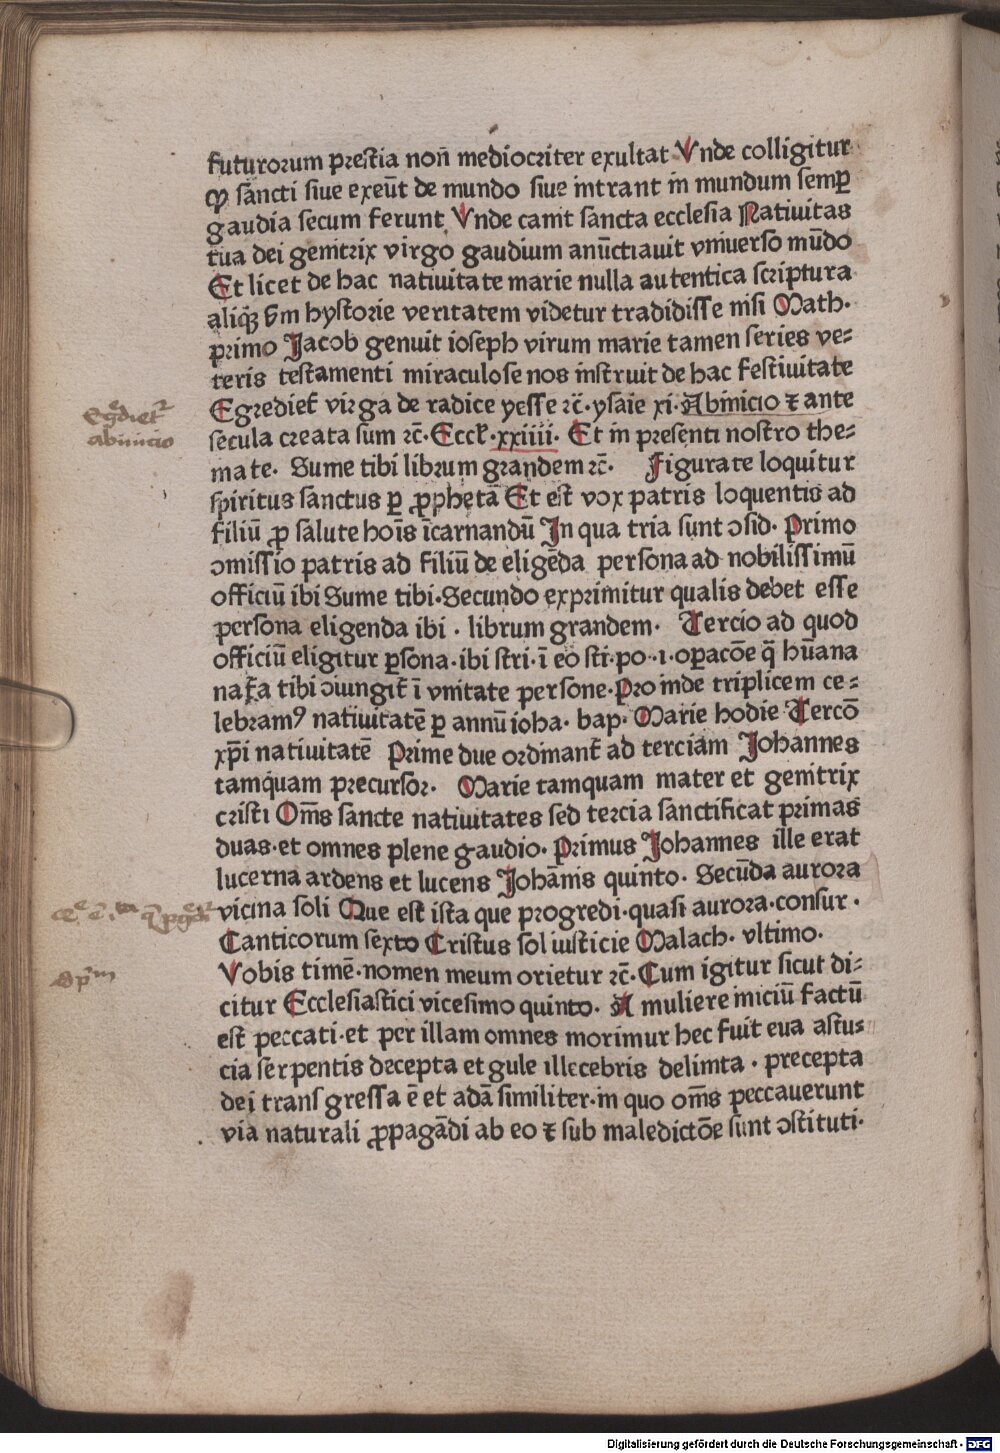 futurorum prestia non̄ mediocriter exultat Vnde colligitur
ꝙ sancti siue exeūt de mundo siue intrant in mundum semꝑ
gaudia secum ferunt Vnde canit sancta ecclesia Natiuitas
tua dei genitrix virgo gaudium anūctiauit vniuerso mūdo
Et licet de hac natiuitate marie nulla autentica scriptura
aliqꝫ ẜm hystorie veritatem videtur tradidisse nisi Math·
primo Jacob genuit ioseph virum marie tamen series ve⸗
teris testamenti miraculose nos instruit de hac festiuitate
Egredieť virga de radice yesse ⁊c̄·ysaie xi·Abinicio ⁊ ante
secula creata sum ⁊c̄·Eccł·xxiiii· Et in presenti nostro the⸗
mate· Sume tibi librum grandem ⁊c̄· Figurate loquitur
spiritus sanctus ꝑ ꝓphetā Et est vox patris loquentis ad
filiū ꝓ salute hoīs īcarnandū In qua tria sunt ↄsid· Primo
ↄmissio patris ad filiū de eligēda persona ad nobilissimū
officiū ibi Sume tibi·Secundo exprimitur qualis debet esse
persona eligenda ibi · librum grandem· Tercio ad quod
officiū eligitur ꝑsona·ibi stri·ī eo sti·po·ı·oꝑacōe q̄ hūana
nať̄a tibi ↄiungiť ī vnitate persone·Pro inde triplicem ce⸗
lebramꝰ natiuitatē ꝑ annū ioha· bap· Marie hodie Tercō
xp̄i natiuitatē Prime due ordinanť ad terciam Johannes
tamquam precursor· Marie tamquam mater et genitrix
cristi Om̄s sancte natiuitates sed tercia sanctificat primas
duas·et omnes plene gaudio· Primus Johannes ille erat
lucerna ardens et lucens Johānis quinto· Secūda aurora
vicina soli Que est ista que progredi·quasi aurora·consur·
Canticorum sexto Cristus sol iusticie Malach· vltimo·
Vobis timē·nomen meum orietur ⁊c̄·Cum igitur sicut di⸗
citur Ecclesiastici vicesimo quinto· A muliere iniciū factū
est peccati·et per illam omnes morimur hec fuit eua astu⸗
cia serpentis decepta et gule illecebris delinita · precepta
dei transgressa ē et adā similiter·in quo om̄s peccauerunt
via naturali ꝓpagādi ab eo ⁊ sub maledictōe sunt ↄstituti·
Egredieť
abinicio
Digitalisierung gefördert durch die Deutsche Forschungsgemeinschaft - DFG